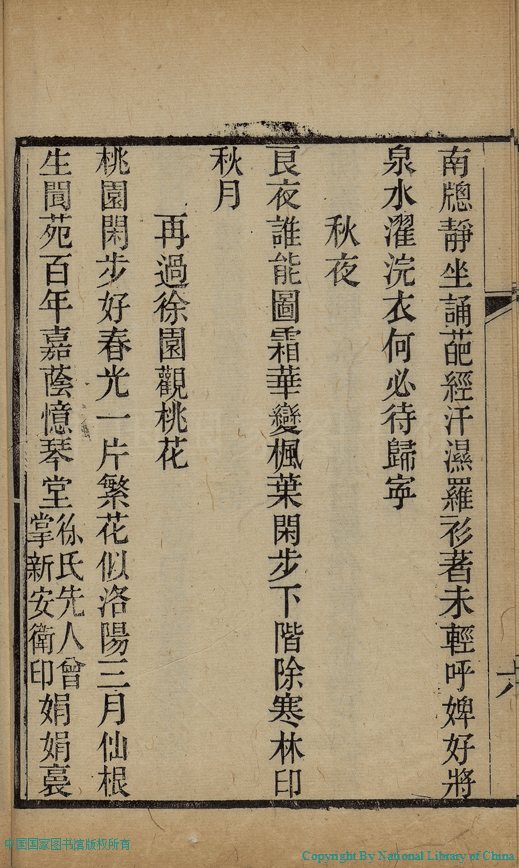 南牕靜坐誦葩經汗濕羅衫著未輕呼婢好將
泉水濯浣衣何必待歸寍
秋夜
良夜誰能圖霜華變楓葉閑步下階除寒林印
秋月
再過徐園觀桃花
桃園閑步好春光一片繁花似洛陽三月仙根
生閬苑百年嘉蔭憶琴堂徐氏先人曾掌新安衛印娟娟裛
六
中国国家图书馆版权所有
Copyright By National Library of China